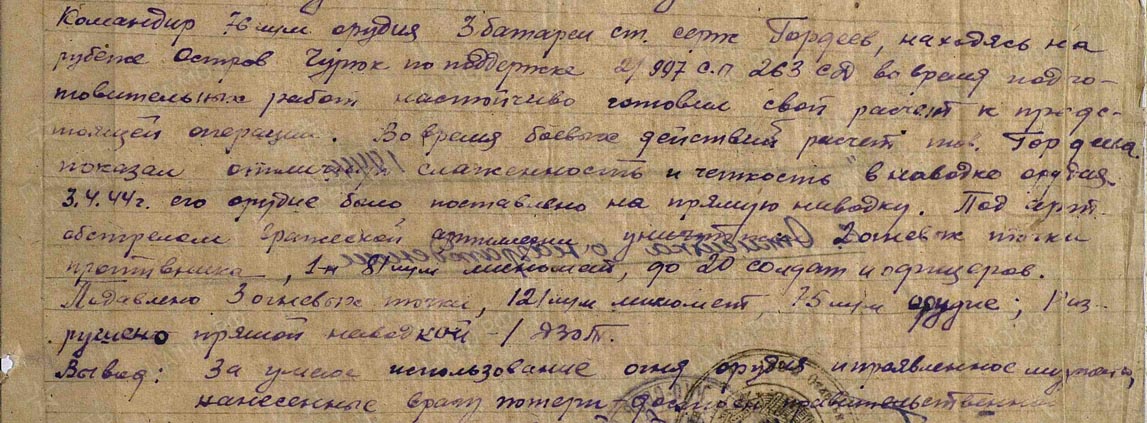 Командир 76 мм орудия 3 батареи ст. серж Гордеев, находясь на
рубеже Остров Чурюк по поддержке 2/997 с.п 263 сд во время подго-
товительных работ настойчиво готовил свой расчет к предс-
тоящей операции. Во время боевых действий расчет тов. Гордеева
показал слаженность и четкость в наводке орудия.
3.4.44г. его орудие было поставлено на прямую наводку. Под арт.
обстрелом вражеской артиллерии 2 огневых точки
противника, 1-н 81 мм миномет, до 20 солдат и офицеров.
Подавлено 3 огневых точки, 121 мм миномет, 75 мм орудие; Раз-
рушено прямой наводкой - 1 ДЗОТ.
Вывод: За умелое использование огня орудия и проявленное мужество,
нанесенные врагу потери - достоин правительственной